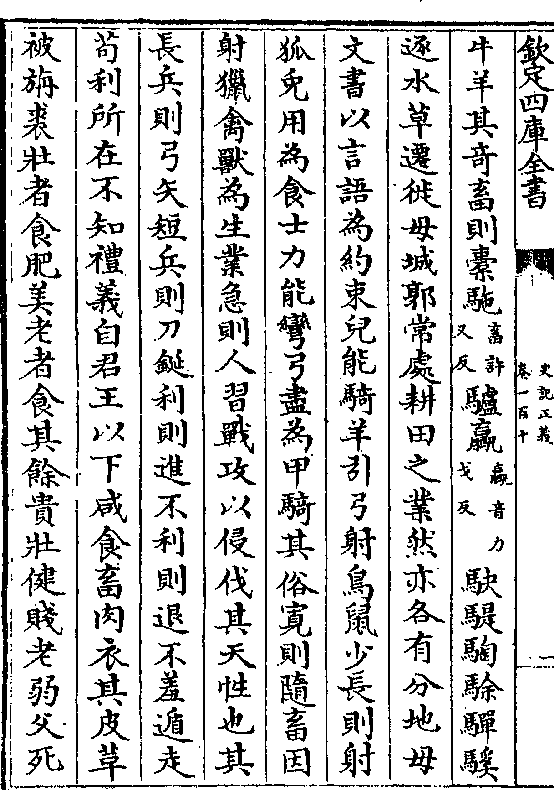 欽定四庫全書
史記正義
卷一百十
一
牛羊其奇畜則橐駞畜許又反驢驘驘音力戈反駃騠騊駼驒騱
逐水草遷徙毋城郭常處耕田之業然亦各有分地毋
文書以言語為約束兒能騎羊引弓射鳥鼠少長則射
狐兔用為食士力能彎弓盡為甲騎其俗寛則隨畜因
射獵禽獸為生業急則人習戰攻以侵伐其天性也其
長兵則弓矢短兵則刀鋋利則進不利則退不羞遁走
苟利所在不知禮義自君王以下咸食畜肉衣其皮革
被旃裘壯者食肥美老者食其餘貴壯健賤老弱父死